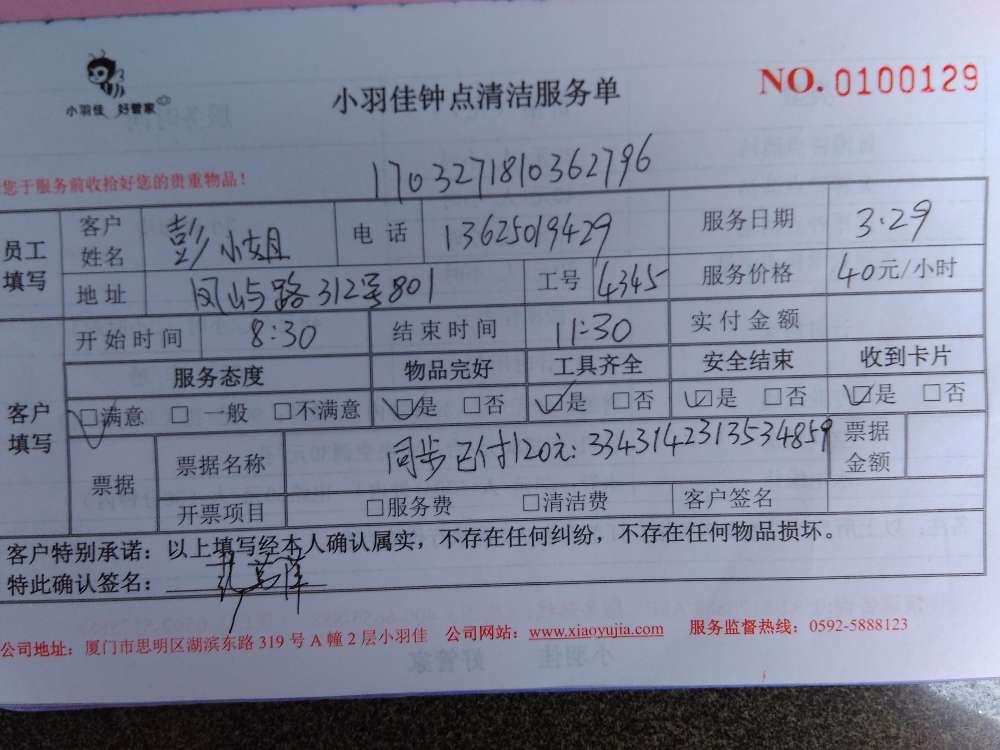 小羽佳 好管家
小羽佳钟点清洁服务单
NO. 0100129
您于服务前收拾好您的贵重物品！
1703271810362796
员工填写 客户姓名 彭小姐 电话 13625019429 服务日期 3.29
地址 凤屿路312号801 工号 4345 服务价格 40元/小时
客户填写 开始时间 8:30 结束时间 11:30 实付金额
服务态度 物品完好 工具齐全 安全结束 收到卡片
☑满意 □一般 □不满意 ☑是 □否 ☑是 □否 ☑是 □否 ☑是 □否
票据 票据名称 同步已付120元：3343142313534859 票据金额
开票项目 □服务费 □清洁费 客户签名
客户特别承诺：以上填写经本人确认属实，不存在任何纠纷，不存在任何物品损坏。
特此确认签名：
公司地址：厦门市思明区湖滨东路319号A幢2层小羽佳 公司网站：www.xiaoyujia.com 服务监督热线：0592-5888123